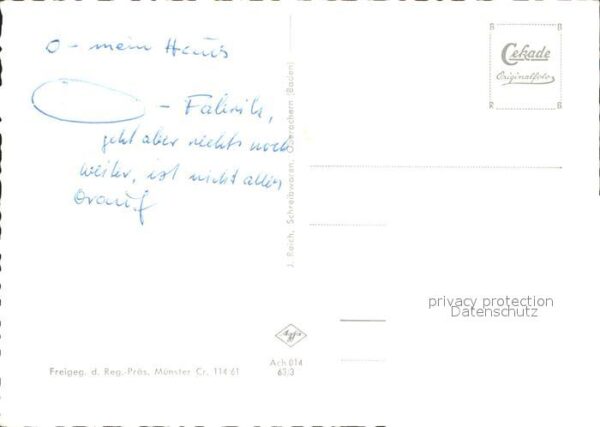 O - mein Haus
- Fabrik,
geht aber rechts noch
weiter, ist nicht alles
drauf
Cekade
Originalfoto
J. Reich, Schreibwaren, Oberachern (Baden)
privacy protection
Datenschutz
Agfa
Ach 614
63,3
Freigeg. d. Reg.-Präs. Münster Cr. 114 61